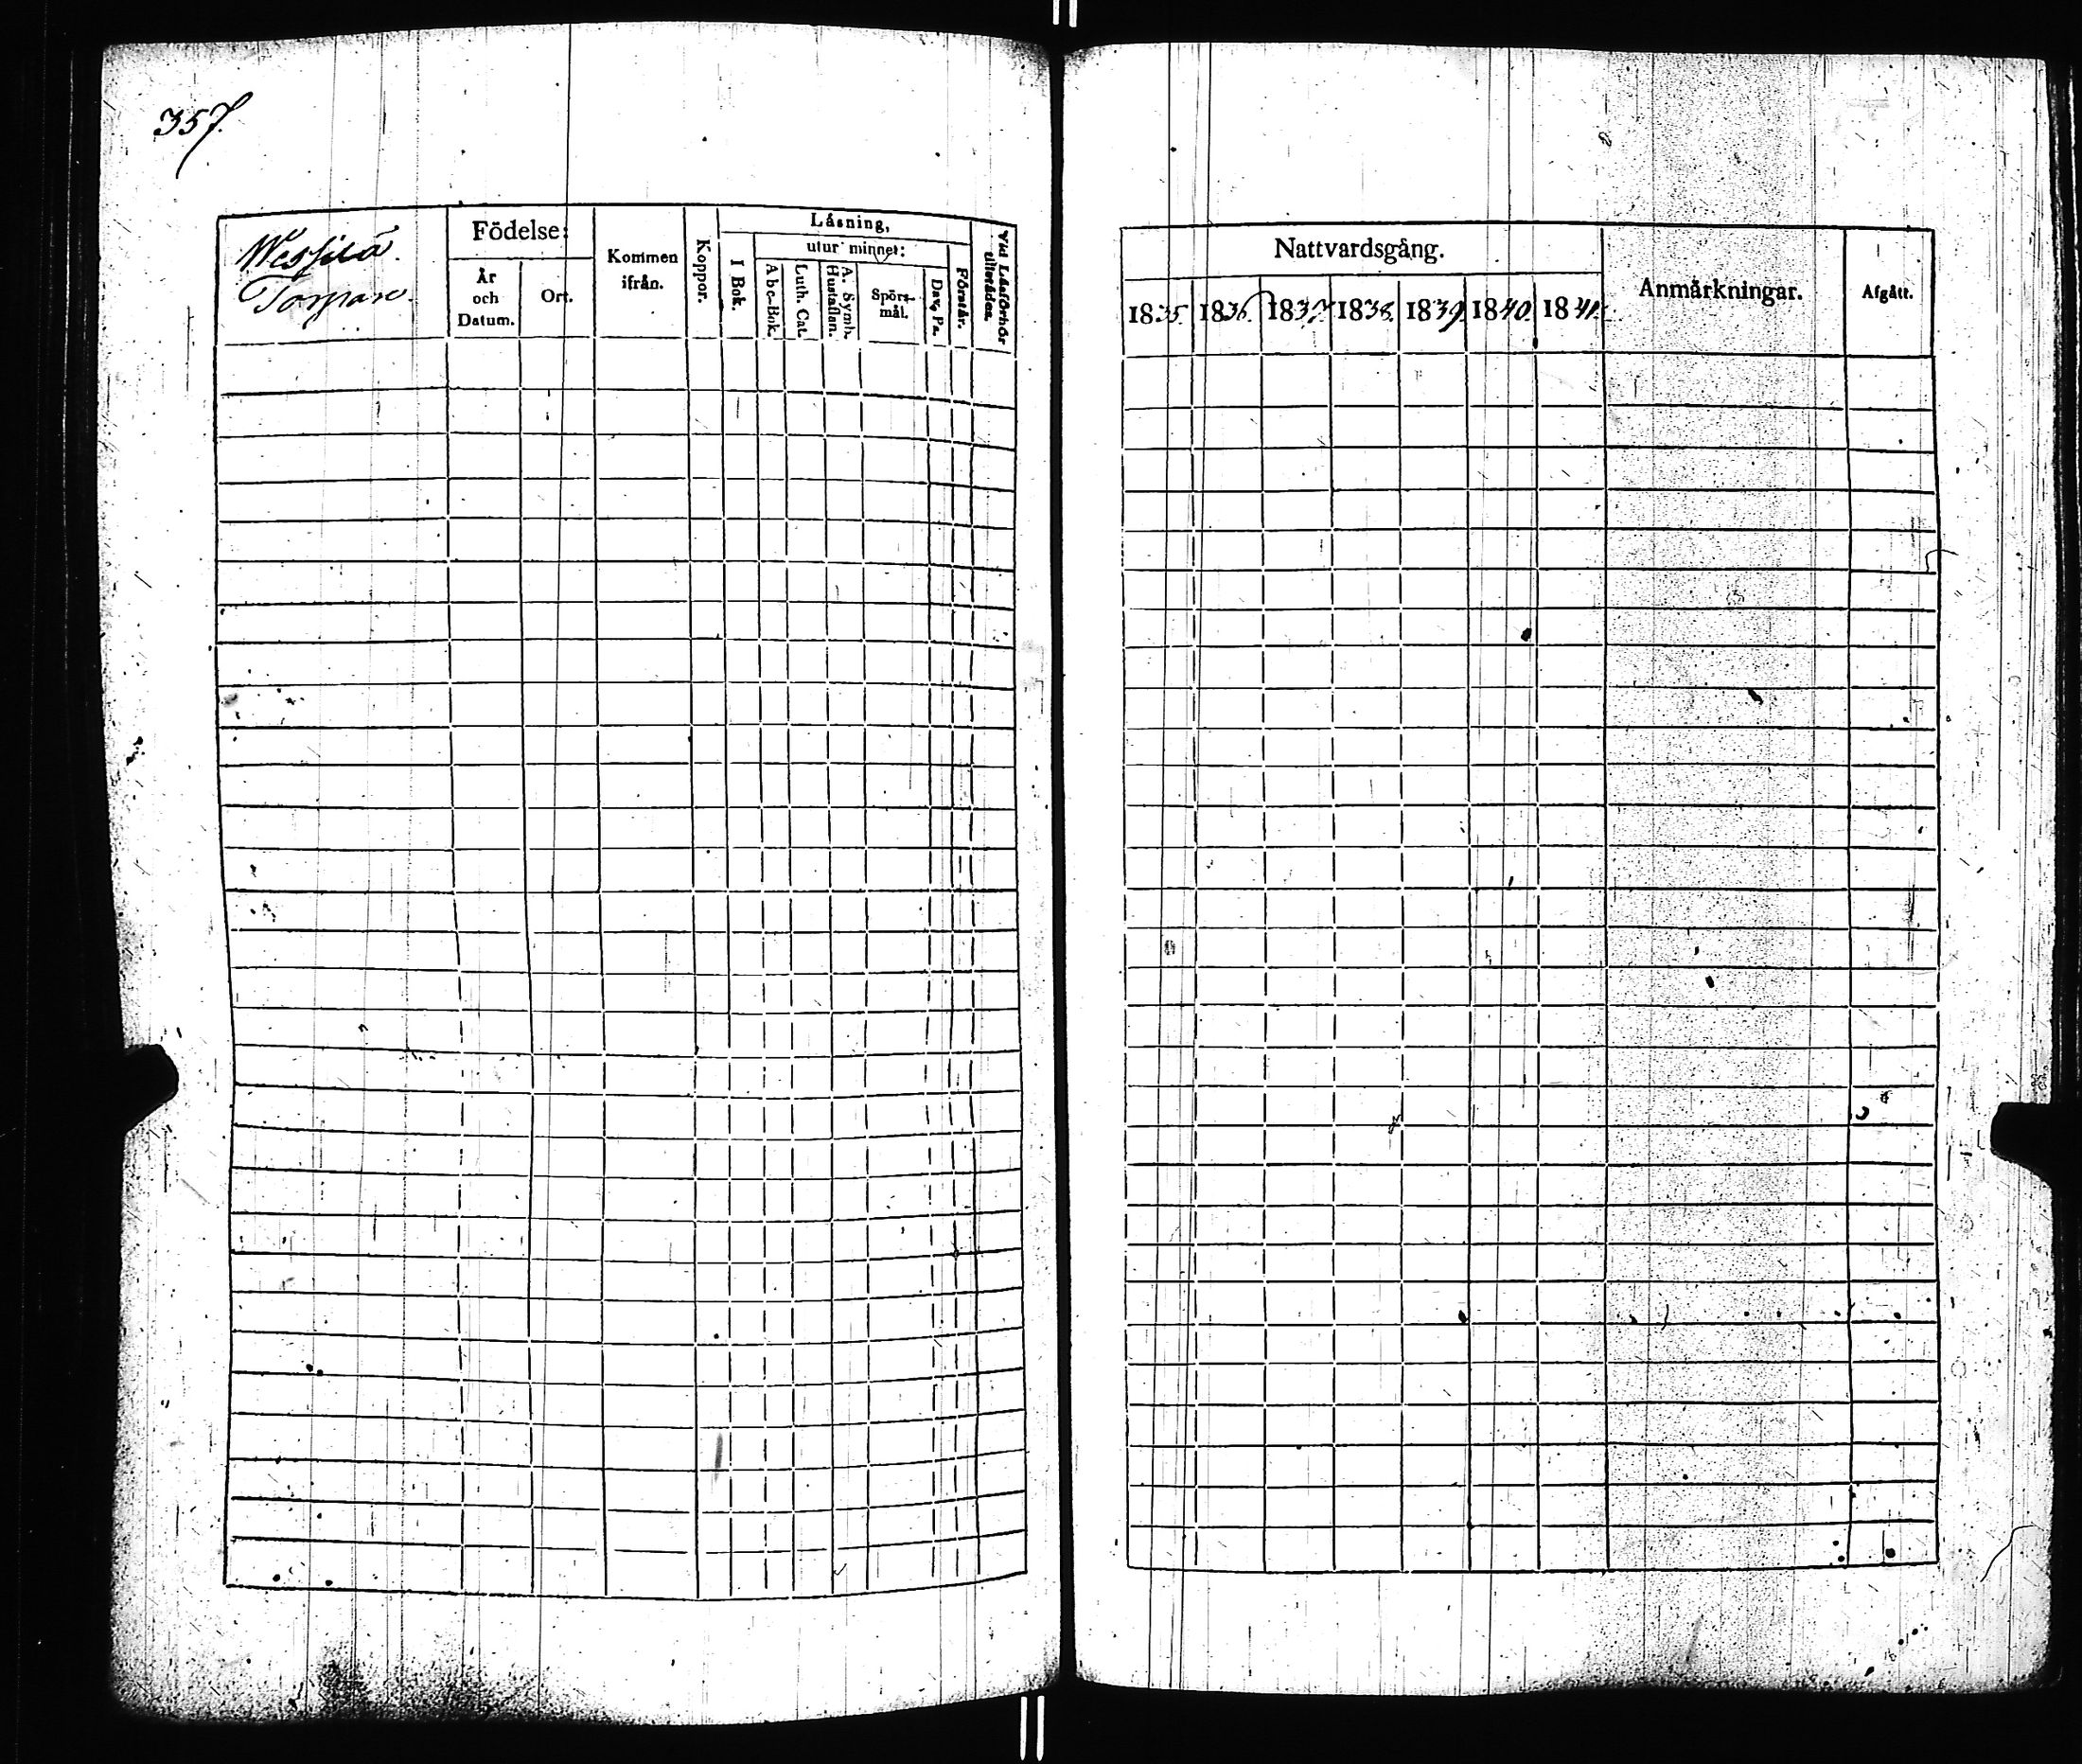 357.
Torpare.
Födelse:
År
och
Datum.
Ort.
Kommen
ifrån.
Koppor.
Läsning,
I Bok.
utur minnet:
Abc-Bok.
Luth. Cat.
A. Symb.
Hustaflan.
Spörs-
mål.
Dav. Ps.
Förstår.
Vid Läsförhör
tillstädes.
Nattvardsgång.
1835. 1836. 1837. 1838. 1839. 1840. 1841.
Anmärkningar.
Afgått.